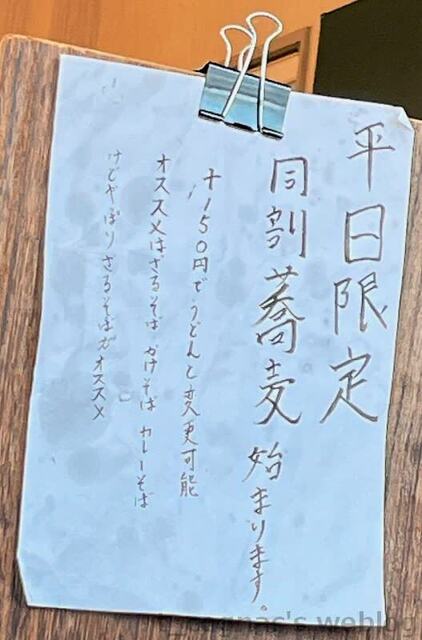 平日限定
同割蕎麦始まります。
+150円でうどんと変更可能
オススメはざるそば かけそば カレーそば
けどやっぱりざるそばがオススメ
's weblog